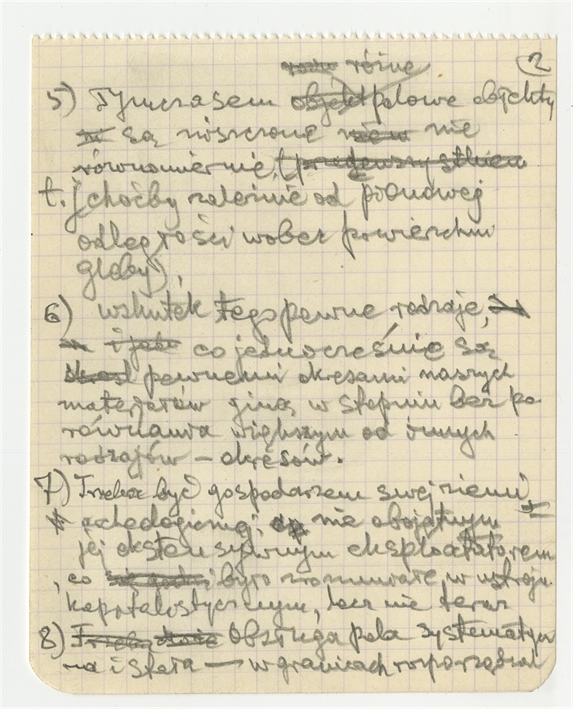 różne 2
5) Tymczasem polowe objekty
są niszczone nie
równomiernie, (
t.j choćby zależnie od pionowej
odległości wobec powierzchni
gleby),
6) wskutek tego pewne rodzaje,
co jednocześnie są
pewnemi okresami naszych
materjałów giną w stopniu bez po
równania większym od innych
rodzajów – okresów.
7) Trzeba być gospodarzem swej ziemi
archeologicznej; nie obojętnym
jej ekstensywnym eksploatatorem
, co było zrozumiałe w ustroju
kapitalistycznym, lecz nie teraz
8) Obsługa pola systematycz
na i stała — w granicach rozporządzal